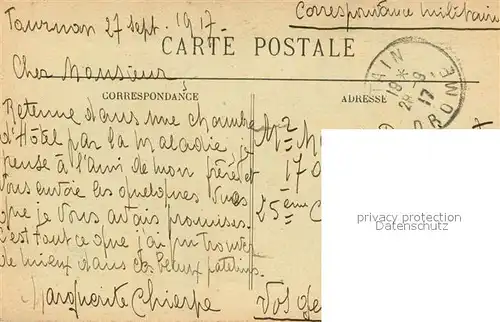 Tournan 27 sept. 1917.
Correspondance militaire
CARTE POSTALE
Cher Monsieur
CORRESPONDANCE
ADRESSE
TAIN
18 *
28 - 9
17
DROME
Retenue dans une chambre
d'Hôtel par la maladie je
pense à l'ami de mon frère et
vous envoie les quelques vues
que je vous avais promises.
C'est tout ce que j'ai pu trouver
de mieux dans ces beaux patelins.
Marguerite Chierpe
17
25ème C
privacy protection
Datenschutz